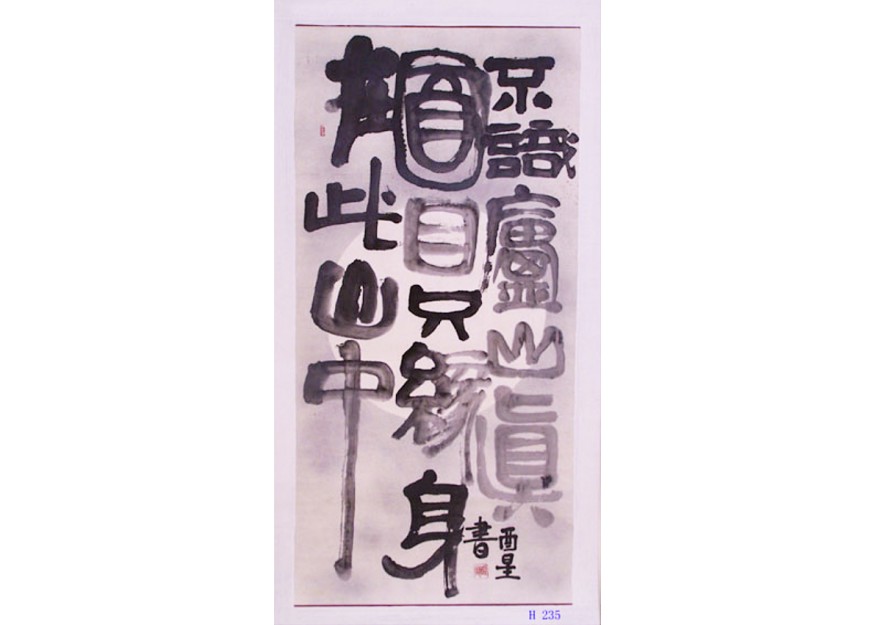 不識廬山真
面目只緣身
在此山中
酉星
書
H 235